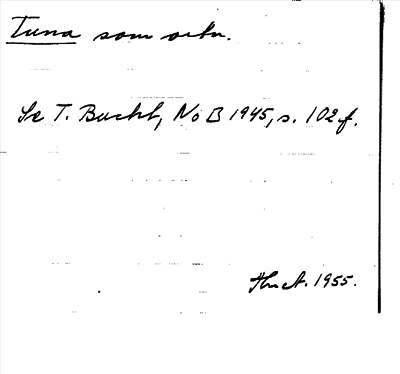 Tuna som ortn.
Se T. Bucht, NoB 1945, s. 102 f.
1955.